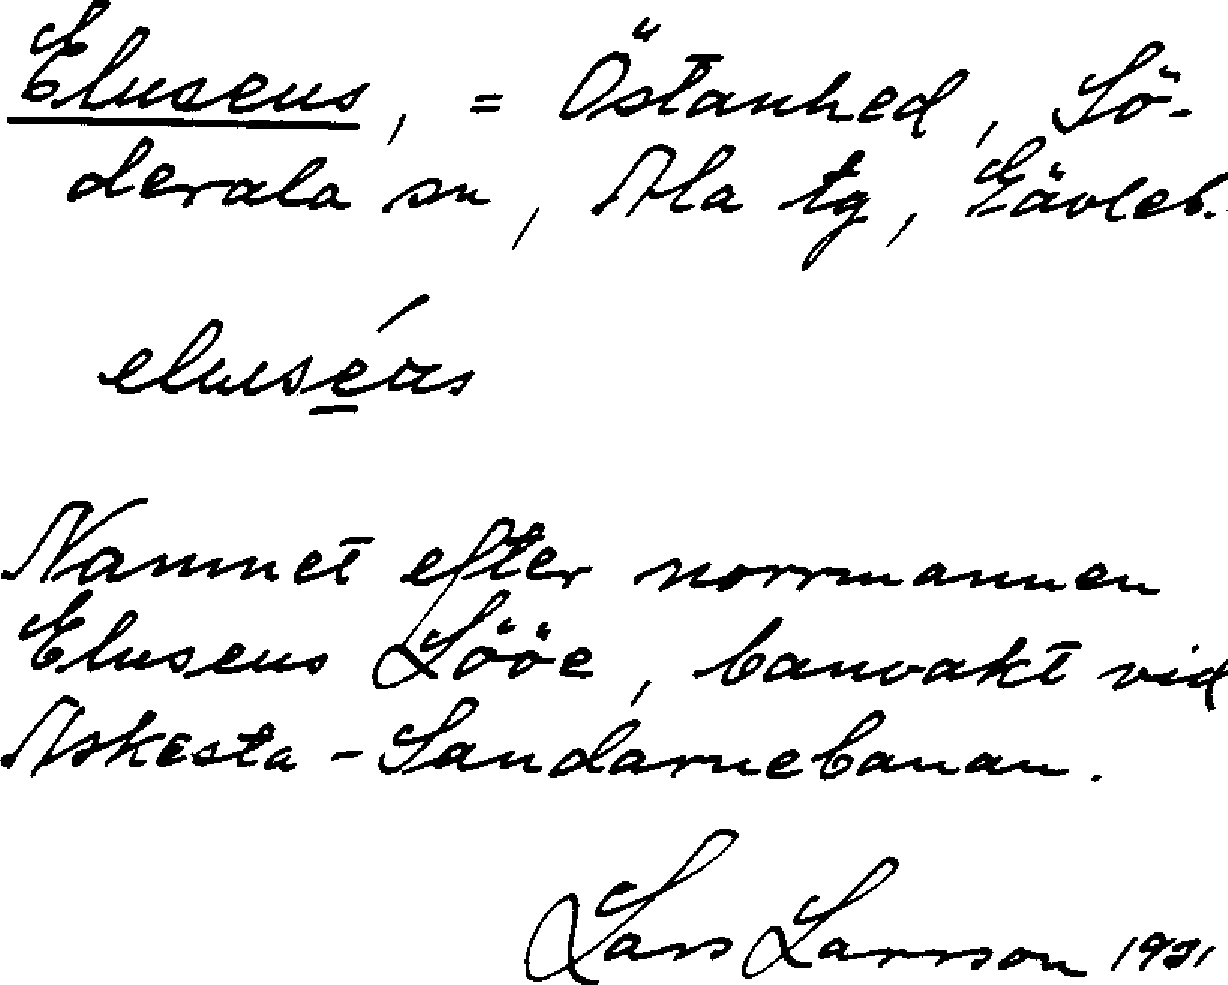 Eluseus, = Östanhed, Sö-
derala sn, Ala tg, Gävleb.
Namnet efter norrmannen
Eluseus Lööe, banvakt vid
Askesta - Sandarnebanan.
Lars Larsson